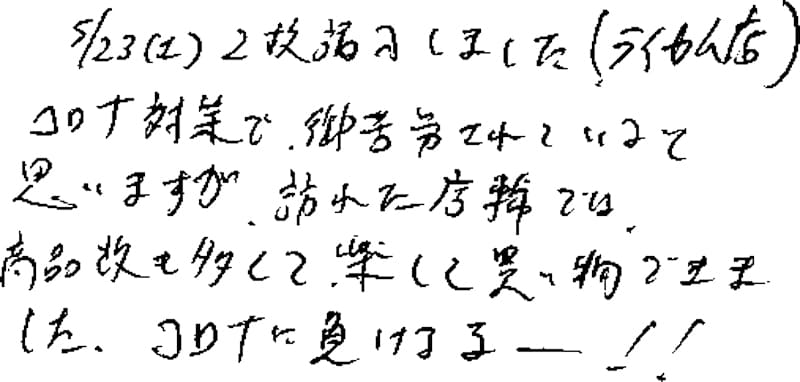 5/23(土) 2枚購入しました(ライカム店)
コロナ対策で、御苦労されていると
思いますが、訪れた店舗では、
商品数も多くて、楽しく買い物できま
した。コロナに負けるなー!!